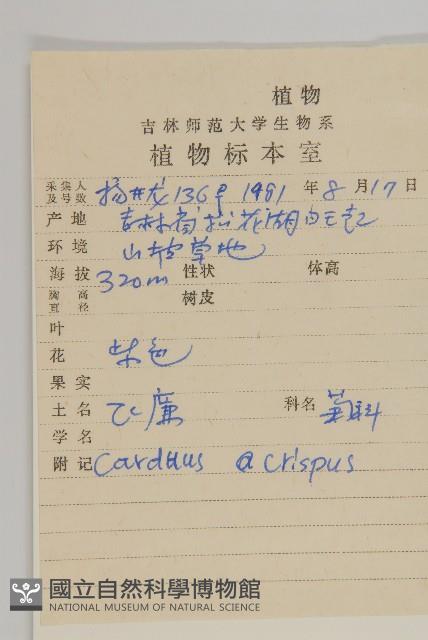 植物
吉林师范大学生物系
植物标本室
采集人及号数 杨井龙 136号 1981年8月17日
产地 吉林省松花湖
环境 山坡草地
海拔 320m 性状 体高
胸高直径 树皮
叶
花 紫色
果实
土名 飞廉 科名 菊科
学名
附记 Carduus crispus
國立自然科學博物館
NATIONAL MUSEUM OF NATURAL SCIENCE